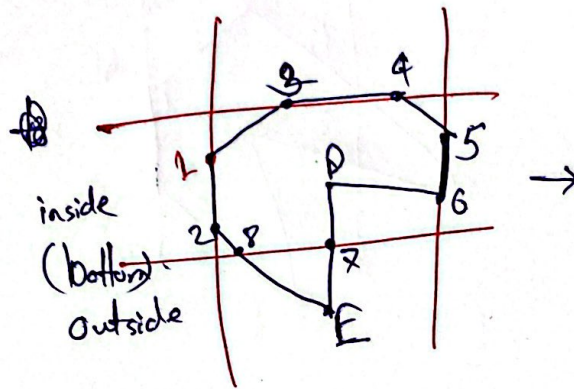 3 4
1 5
D
6
inside
2 8 7
(bottom)
E
outside